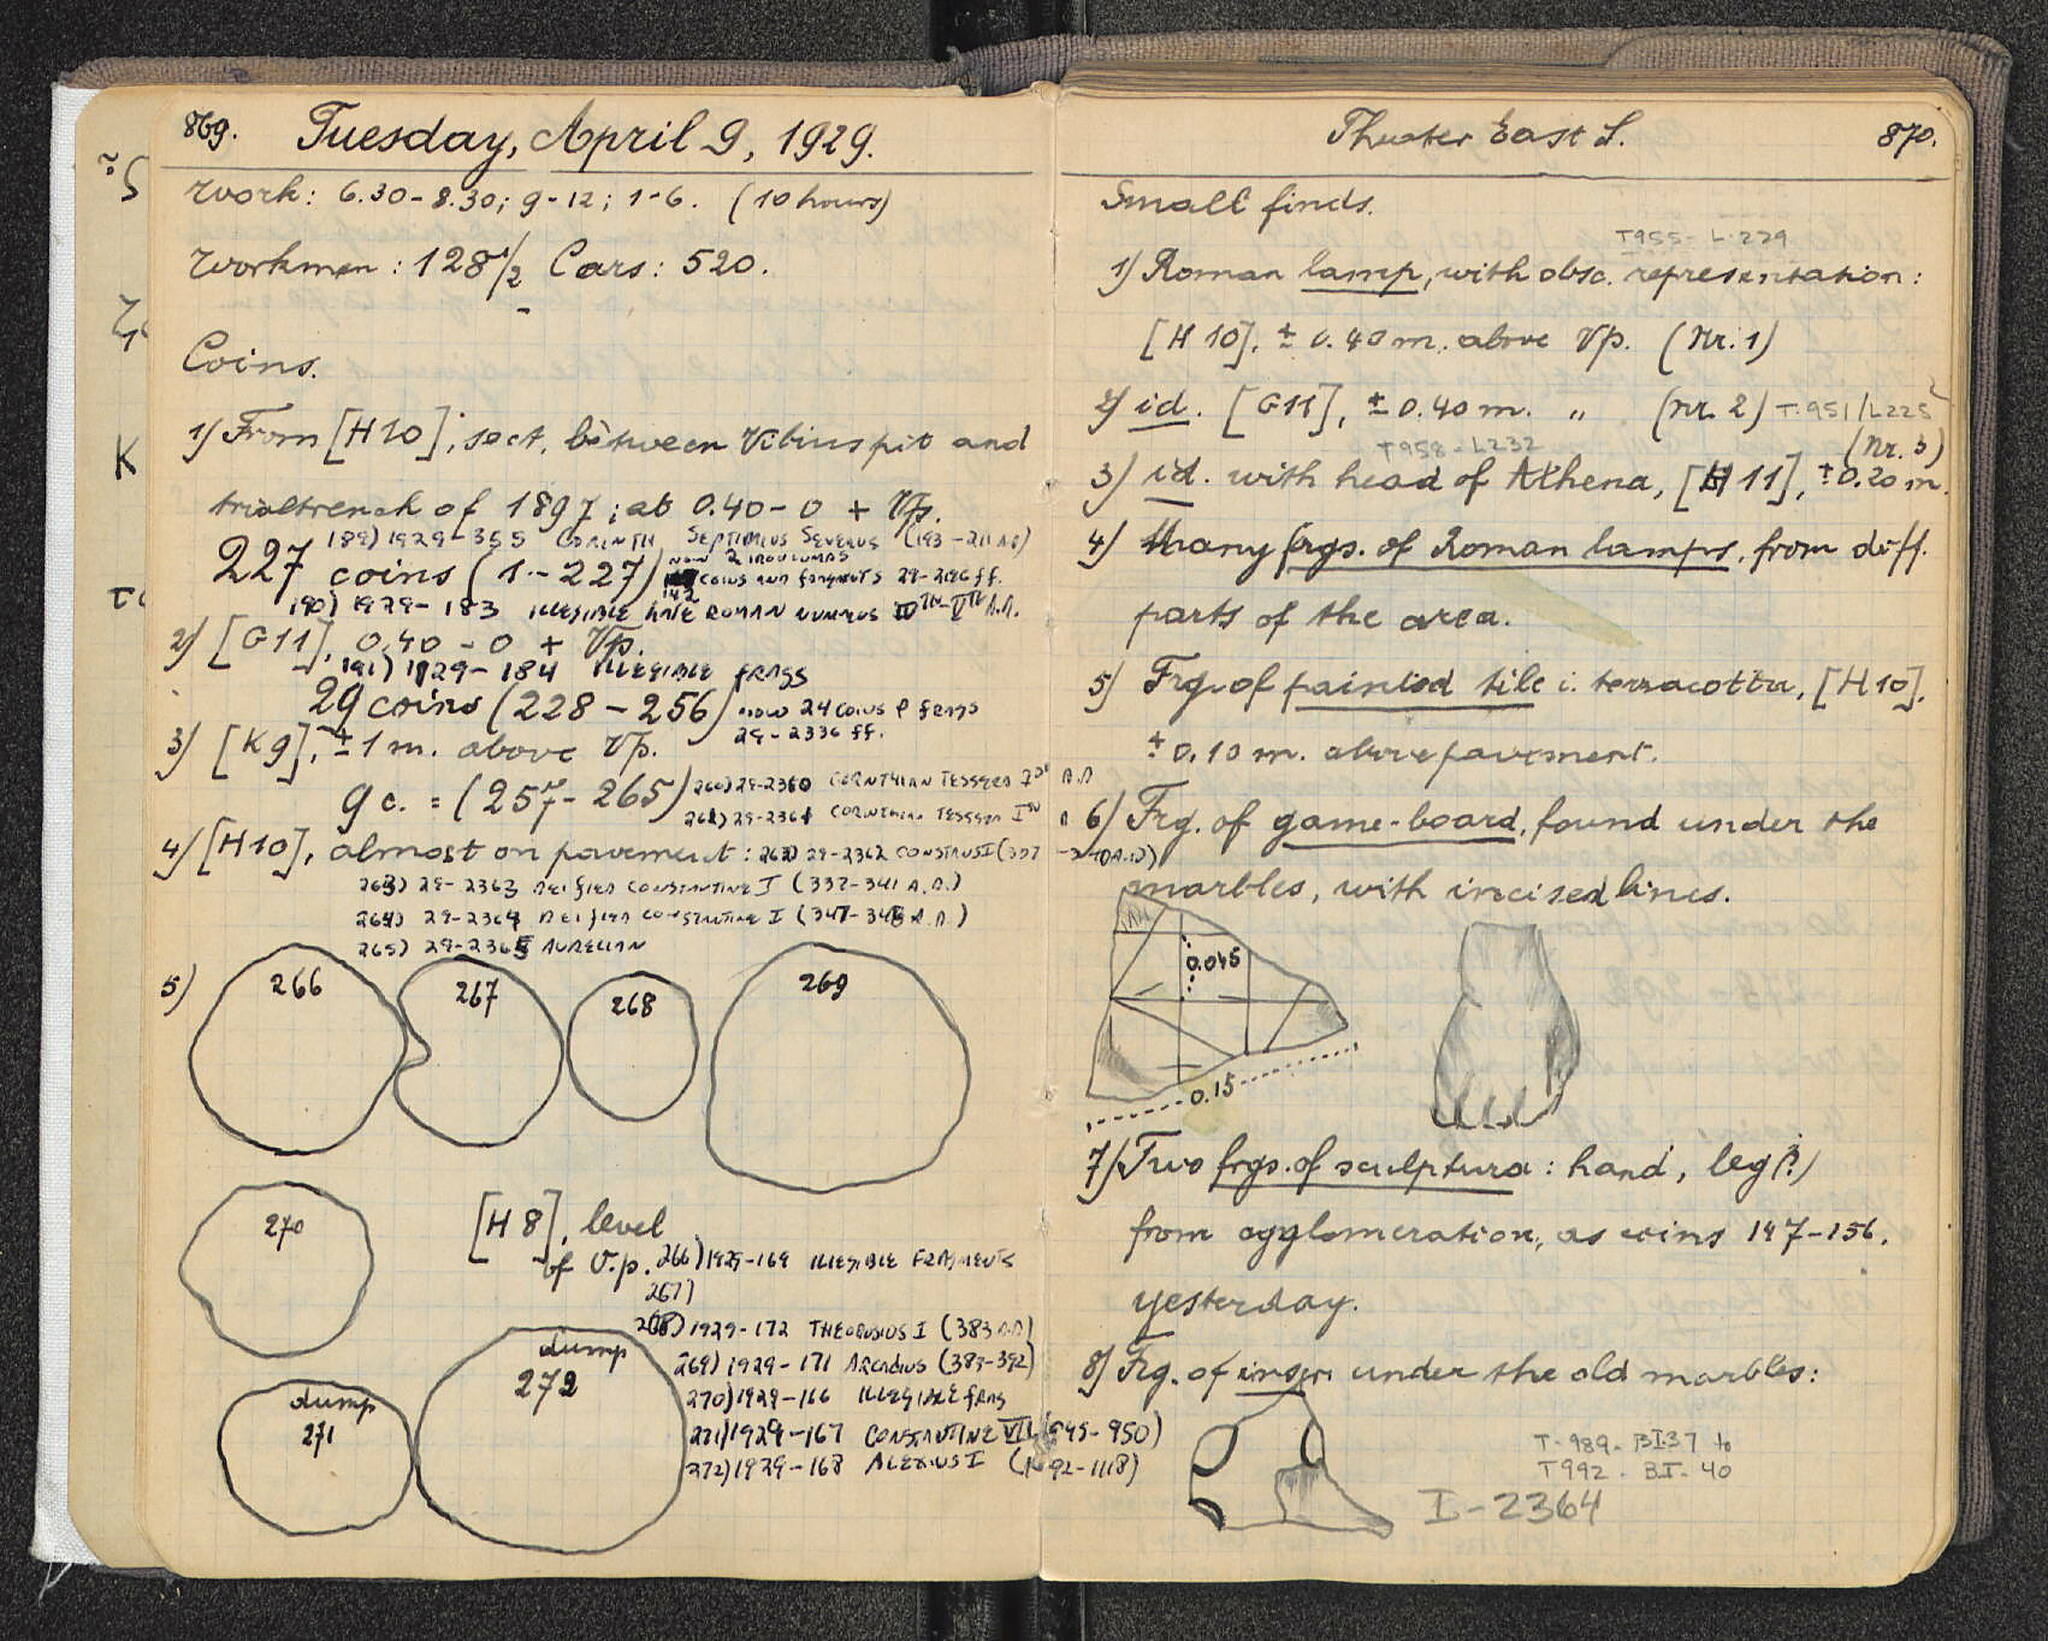 869. Tuesday, April 9, 1929.
Work: 6.30-8.30; 9-12; 1-6. (10 hours)
Workmen: 128 1/2 Cars: 520.
Coins.
1) From [H10], sect. between Vibius pit and
trialtrench of 1897; at 0.40-0 + Vp.
189) 1929-355 CORINTH SEPTIMIUS SEVERUS (193-211 AD)
227 coins (1.-227) NOW 2 INDIVIDUALS
142 COINS AND FRAGMENTS 29-2196 ff.
190) 1929-183 ILLEGIBLE LATE ROMAN NUMMUS IVTH-VTH A.D.
2) [G11], 0.40-0 + Vp.
191) 1929-184 ILLEGIBLE FRAGS
29 coins (228-256) NOW 24 COINS & FRAGS
29-2336 ff.
3) [K9], ± 1 m. above Vp.
9 c. = (257-265) 260) 29-2360 CORINTHIAN TESSERA A.D
261) 29-2361 CORINTHIAN TESSERA
4) [H10], almost on pavement: 262) 29-2362 CONSTANS I (337-340 A.D)
263) 29-2363 DEIFIED CONSTANTINE I (337-341 A.D.)
264) 29-2364 DEIFIED CONSTANTINE I (347-348 A.D.)
265) 29-2365 AURELIAN
5) 266 267 268 269
270 [H8], level
of V.p. 266) 1929-169 ILLEGIBLE FRAGMENTS
267)
268) 1929-172 THEODOSIUS I (383 A.D)
dump
272
269) 1929-171 ARCADIUS (383-392)
270) 1929-166 ILLEGIBLE FRAG
dump
271
271) 1929-167 CONSTANTINE VII (945-950)
272) 1929-168 ALEXIUS I (1092-1118)
Theater East S. 870.
Small finds.
T955-L-229
1) Roman lamp, with obsc. representation:
[H10], ± 0.40 m. above Vp. (Nr. 1)
2) id. [G11], ± 0.40 m. " (Nr. 2) T-951/L225
T958-L232
(Nr. 3)
3) id. with head of Athena, [H11], ± 0.20 m.
4) Many frgs. of Roman lamps, from diff.
parts of the area.
5) Frg. of painted tile i. terracotta, [H10],
± 0.10 m. above pavement.
6) Frg. of game-board, found under the
marbles, with incised lines.
0.045
0.15
7) Two frgs. of sculptura: hand, leg(?)
from agglomeration, as coins 147-156,
yesterday.
8) Frg. of inscr. under the old marbles:
T-989- BI37 to
T992- BI-40
I-2364